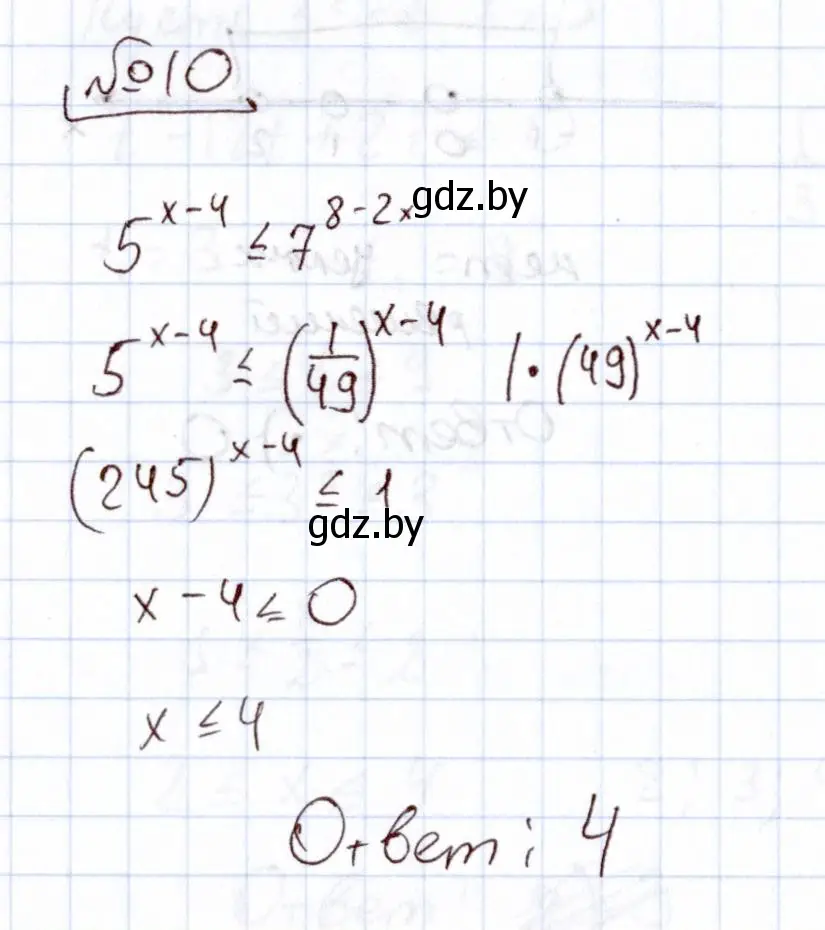 №10
5^{x-4} ≤ 7^{8-2x} gdz.by
5^{x-4} ≤ (1/49)^{x-4} | · (49)^{x-4}
(245)^{x-4} ≤ 1
gdz.by
x - 4 ≤ 0
x ≤ 4
Ответ: 4